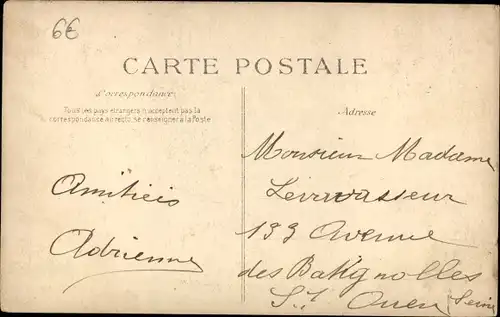 6€
CARTE POSTALE
Correspondance
Tous les pays étrangers n'acceptent pas la
correspondance au recto. Se renseigner à la Poste
Adresse
Amitiés
Adrienne
Monsieur Madame
Levavasseur
133 Avenue
des Batignolles
St Ouen (Seine